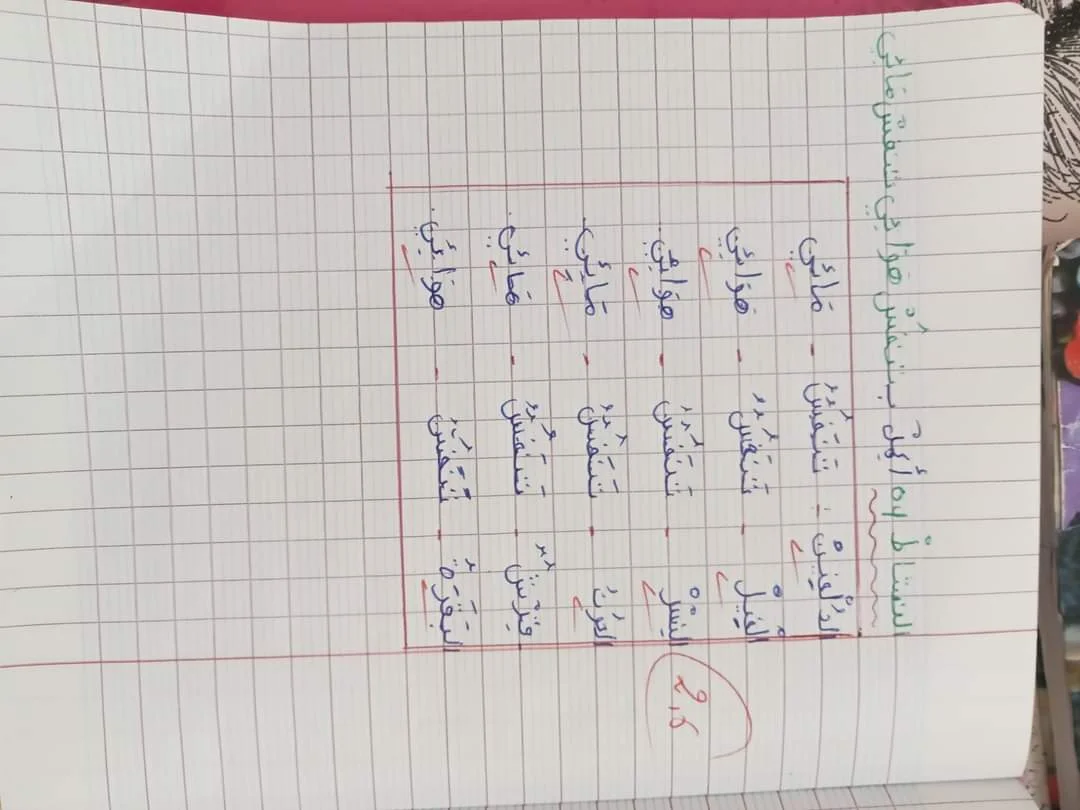 النشاط 04 أكمل ب تنفس هوائي تنفس مائي
الدلفين - تنفس - مائي
الفيل - تنفس - هوائي
النسر - تنفس - هوائي
- تنفس - مائي
قرش - تنفس - مائي
البقرة - تنفس - هوائي